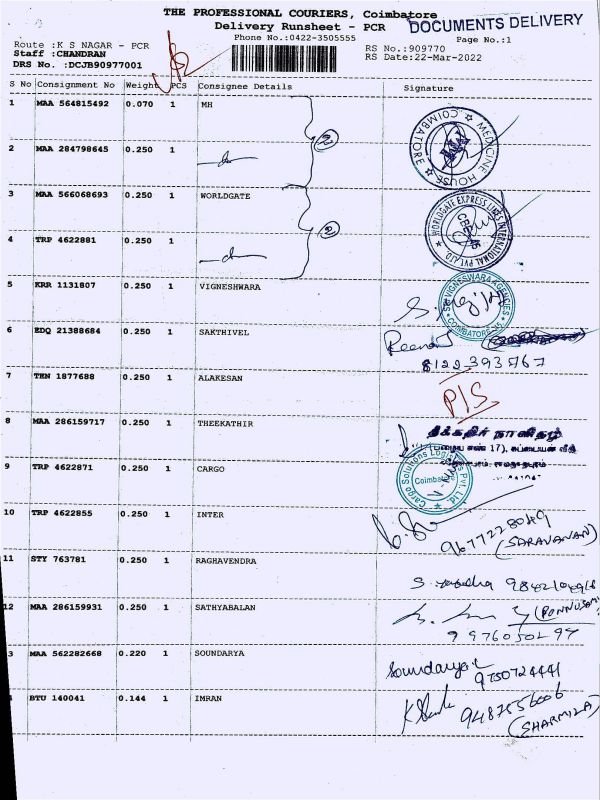 THE PROFESSIONAL COURIERS, Coimbatore
Delivery Runsheet - PCR
DOCUMENTS DELIVERY
Phone No.:0422-3505555
Page No.:1
Route :K S NAGAR - PCR
Staff :CHANDRAN
DRS No. :DCJB90977001
RS No.:909770
RS Date:22-Mar-2022
S No Consignment No Weight PCS Consignee Details Signature
1 MAA 564815492 0.070 1 MH
COIMBATORE ☆ MEDICINE HOUSE ☆
2 MAA 284798645 0.250 1
(2)
3 MAA 566068693 0.250 1 WORLDGATE
WORLDGATE EXPRESS LINES INTERNATIONAL PVT.LTD
CBE
4 TRP 4622881 0.250 1
(2)
5 KRR 1131807 0.250 1 VIGNESHWARA
SRI VIGNESWARA AGENCIES
COIMBATORE
6 EDQ 21388684 0.250 1 SAKTHIVEL
8122393767
7 TEN 1877688 0.250 1 ALAKESAN
P/S
8 MAA 286159717 0.250 1 THEEKATHIR
தீக்கதிர் நாளிதழ்
9 TRP 4622871 0.250 1 CARGO
Cargo Solutions Logistics Pvt. Ltd
Coimbatore
10 TRP 4622855 0.250 1 INTER
9677228049
(SARAVANAN)
11 STY 763781 0.250 1 RAGHAVENDRA
12 MAA 286159931 0.250 1 SATHYABALAN
9976050297
3 MAA 562282668 0.220 1 SOUNDARYA
Soundarya
9750724441
BTU 140041 0.144 1 IMRAN
9487556006
(SHARMILA)